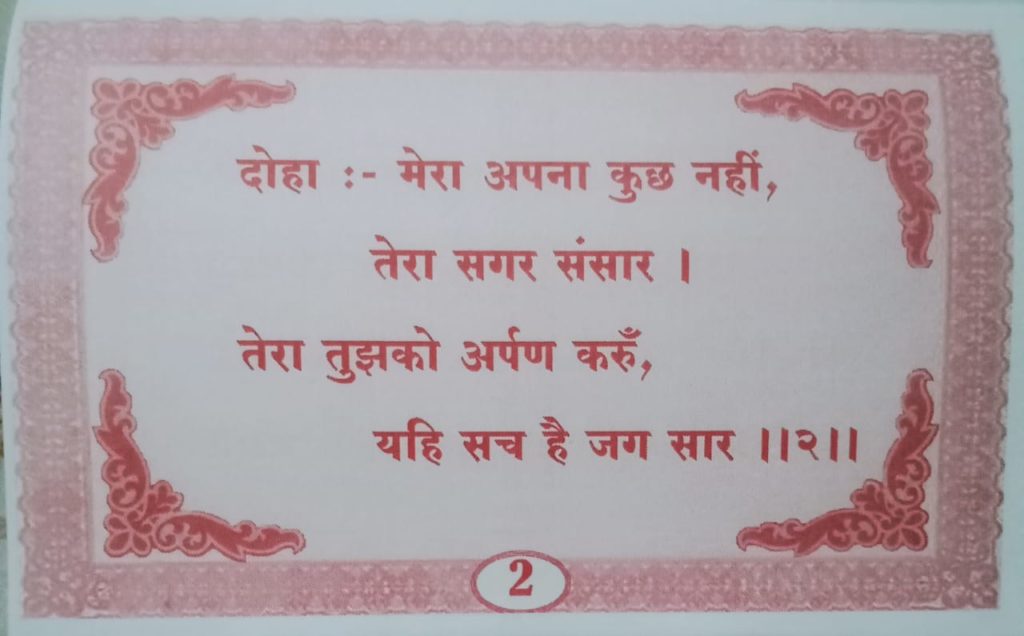 दोहा :- मेरा अपना कुछ नहीं,
तेरा सगर संसार ।
तेरा तुझको अर्पण करुँ,
यहि सच है जग सार ।।२।।
2